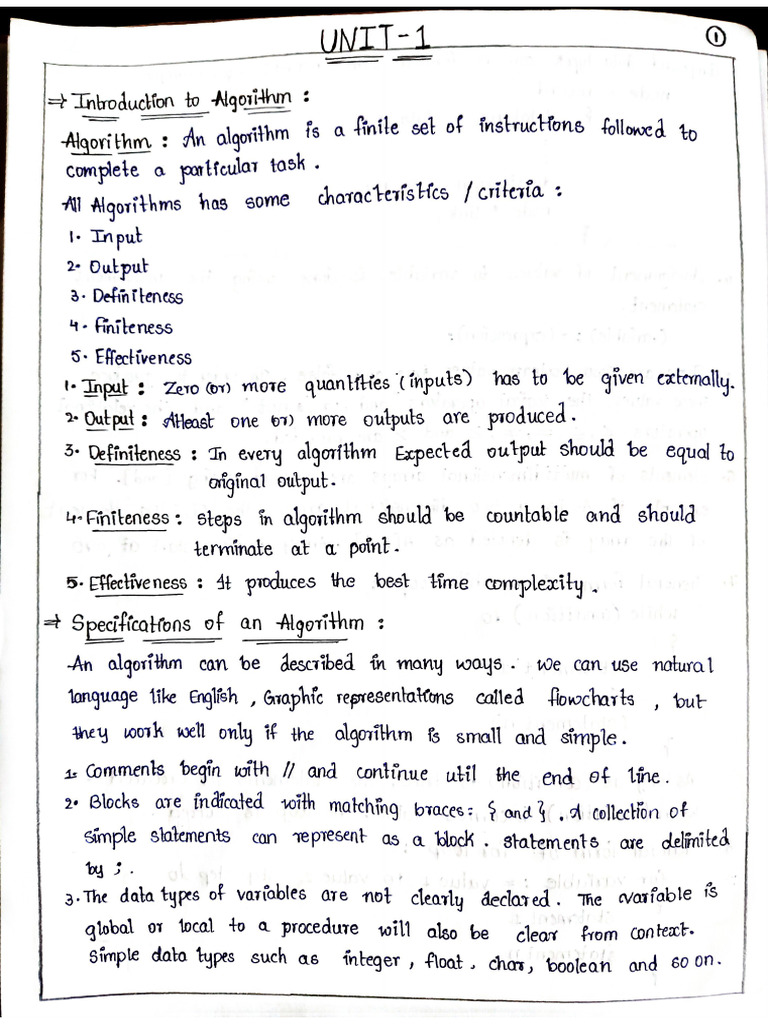 UNIT-1
1
⇒ Introduction to Algorithm :
Algorithm : An algorithm is a finite set of instructions followed to
complete a particular task.
All Algorithms has some characteristics / criteria :
1. Input
2. Output
3. Definiteness
4. finiteness
5. Effectiveness
1. Input : Zero (or) more quantities (inputs) has to be given externally.
2. Output : Atleast one (or) more outputs are produced.
3. Definiteness : In every algorithm Expected output should be equal to
original output.
4. Finiteness : steps in algorithm should be countable and should
terminate at a point.
5. Effectiveness : It produces the best time complexity.
⇒ Specifications of an Algorithm :
An algorithm can be described in many ways. we can use natural
language like English, Graphic representations called flowcharts, but
they work well only if the algorithm is small and simple.
1. Comments begin with // and continue util the end of line.
2. Blocks are indicated with matching braces: { and }. A collection of
simple statements can represent as a block. statements are delimited
by ;.
3. The data types of variables are not clearly declared. The variable is
global or local to a procedure will also be clear from context.
simple data types such as integer, float, char, boolean and so on.